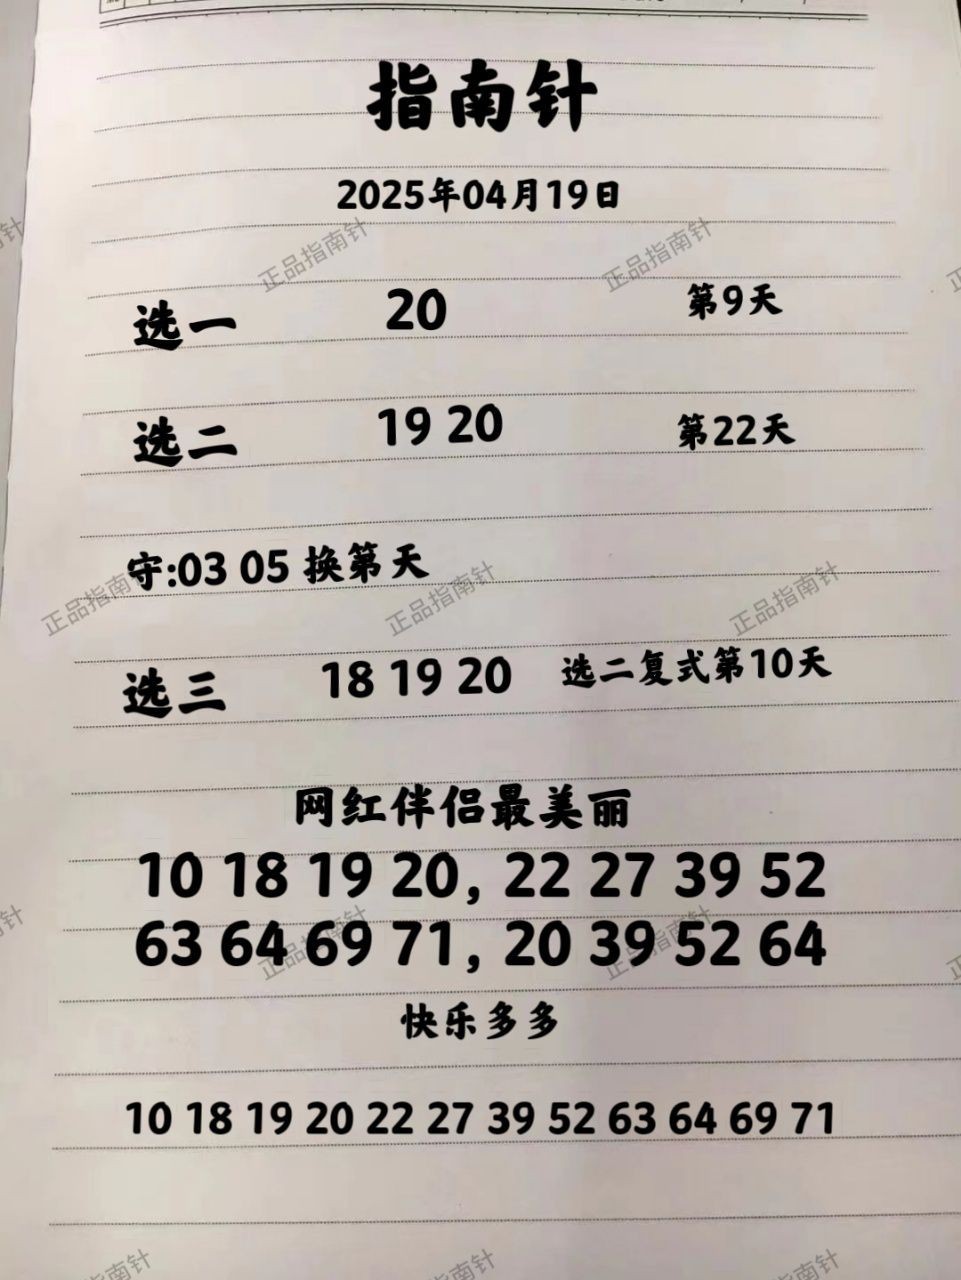 指南针
2025年04月19日
选一 20 第9天
选二 19 20 第22天
守:03 05 换第天
选三 18 19 20 选二复式第10天
网红伴侣最美丽
10 18 19 20, 22 27 39 52
63 64 69 71, 20 39 52 64
快乐多多
10 18 19 20 22 27 39 52 63 64 69 71
正品指南针
正品指南针
正品指南针
正品指南针
正品指南针
正品指南针
正品指南针